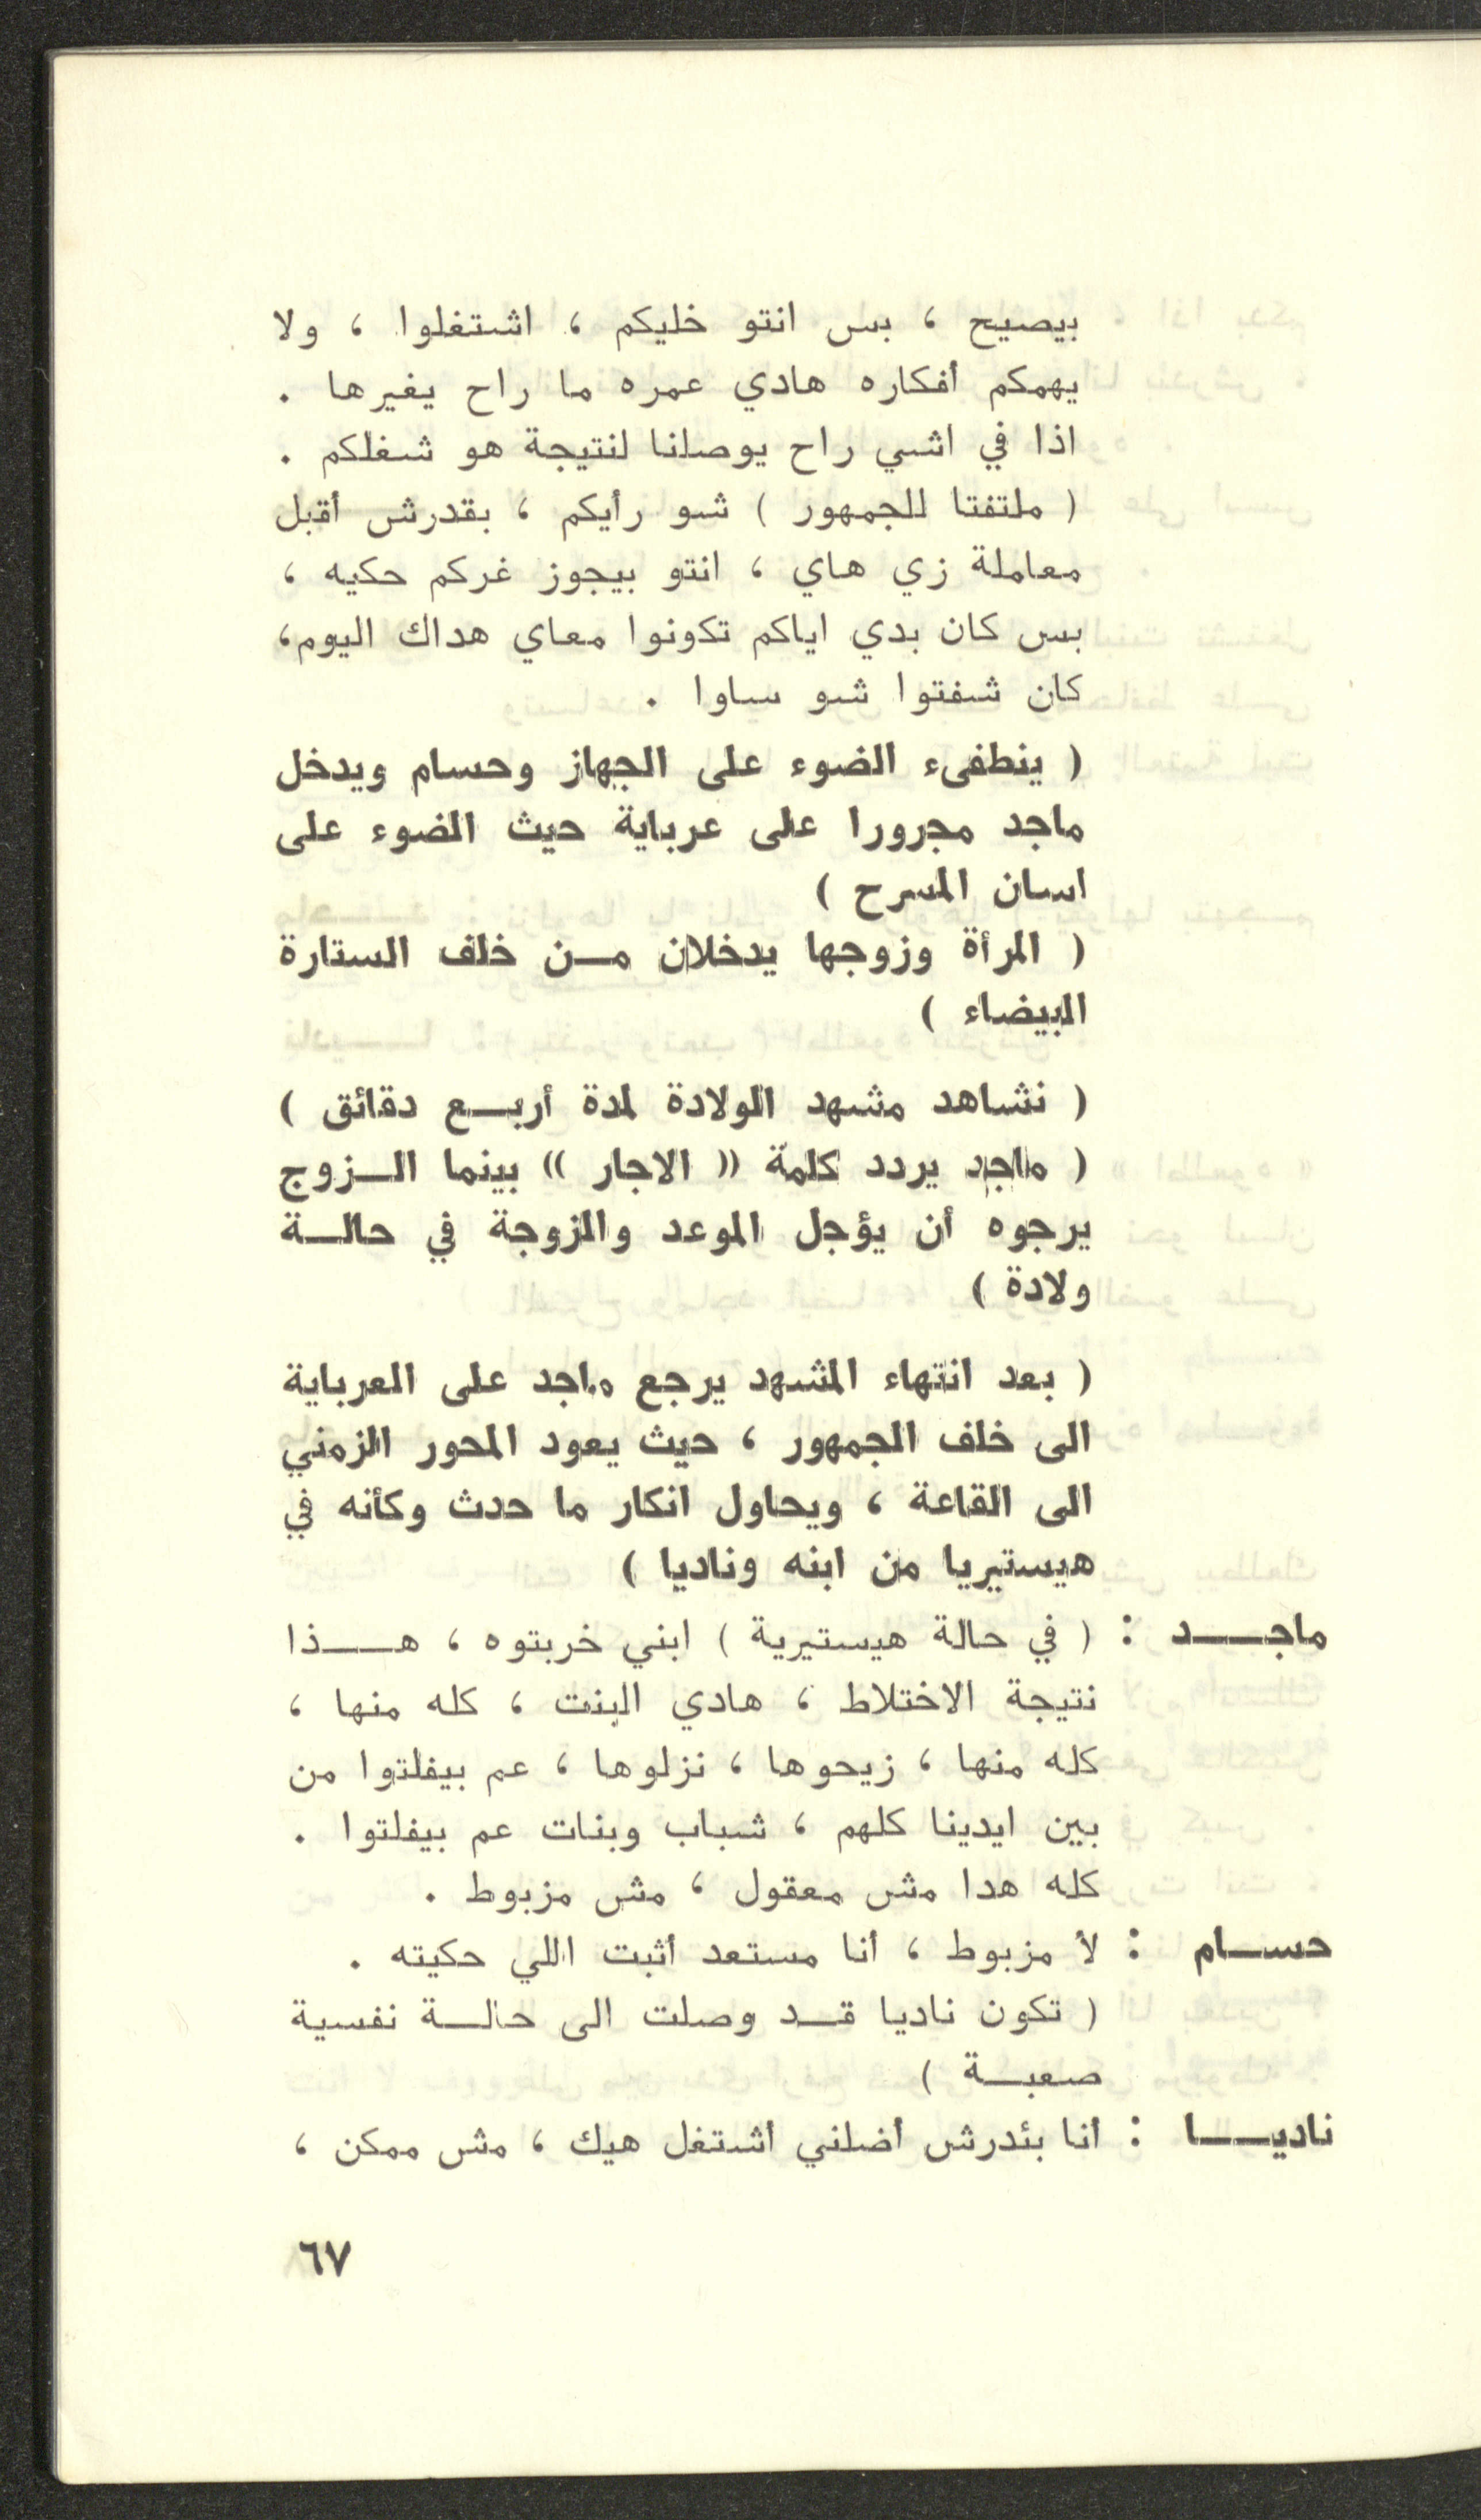 بيصيح ، بس انتو خليكم ، اشتغلوا ، ولا
يهمكم أفكاره هادي عمره ما راح يغيرها .
اذا في اشي راح يوصلنا لنتيجة هو شغلكم .
( ملتفتا للجمهور ) شو رأيكم ، بقدرش أقبل
معاملة زي هاي ، انتو بيجوز غركم حكيه ،
بس كان بدي اياكم تكونوا معاي هداك اليوم،
كان شفتوا شو ساوا .
( ينطفىء الضوء على الجهاز وحسام ويدخل
ماجد مجرورا على عرباية حيث الضوء على
اسان المسرح )
( المرأة وزوجها يدخلان مــن خلف الستارة
البيضاء )
( نشاهد مشهد الولادة لمدة أربــع دقائق )
( ماجد يردد كلمة « الاجار » بينما الــزوج
يرجوه أن يؤجل الموعد والزوجة في حالــة
ولادة )
( بعد انتهاء المشهد يرجع ماجد على العرباية
الى خلف الجمهور ، حيث يعود المحور الزمني
الى القاعة ، ويحاول انكار ما حدث وكأنه في
هيستيريا من ابنه وناديا )
ماجــــد : ( في حالة هيستيرية ) ابني خربتوه ، هــــذا
نتيجة الاختلاط ، هادي البنت ، كله منها ،
كله منها ، زيحوها ، نزلوها ، عم بيفلتوا من
بين ايدينا كلهم ، شباب وبنات عم بيفلتوا .
كله هدا مش معقول ، مش مزبوط .
حســـام : لأ مزبوط ، أنا مستعد أثبت اللي حكيته .
( تكون ناديا قــد وصلت الى حالــة نفسية
صعبــة )
ناديــــا : أنا بئدرش أضلني أشتغل هيك ، مش ممكن ،
٦٧